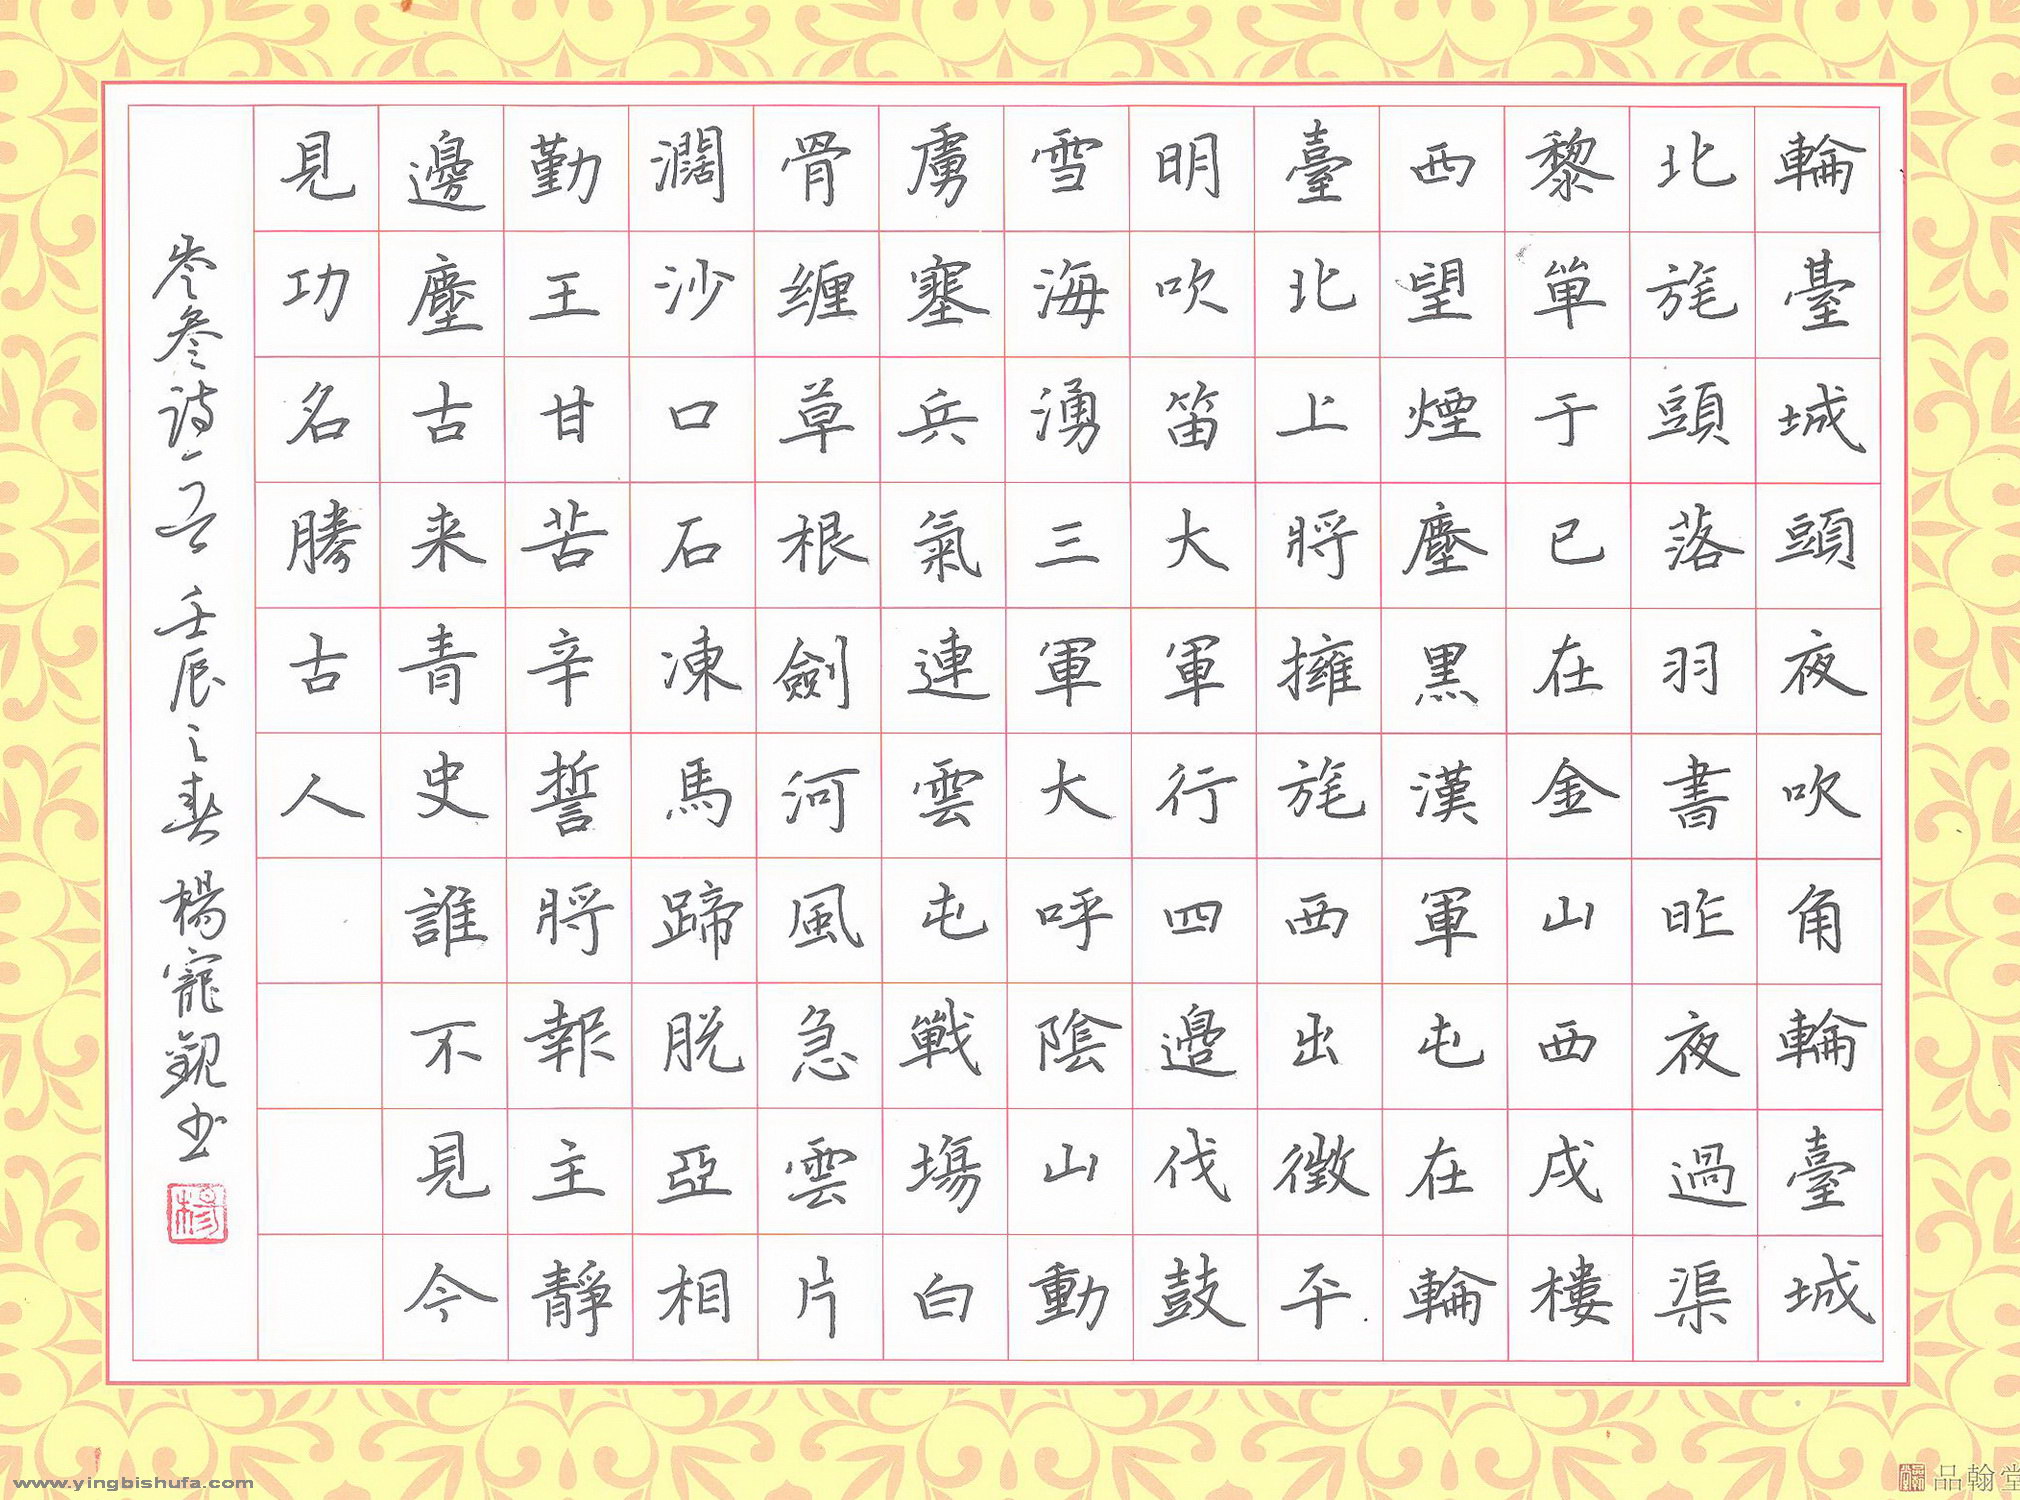 輪臺城頭夜吹角輪臺城
北旄頭落羽書昨夜過渠
黎單于已在金山西戍樓
西望煙塵黑漢軍屯在輪
臺北上將擁旄西出徵平
明吹笛大軍行四邊伐鼓
雪海湧三軍大呼陰山動
虜塞兵氣連雲屯戰場白
骨缠草根劍河風急雲片
濶沙口石凍馬蹄脱亞相
勤王甘苦辛誓將報主靜
邊塵古来青史誰不見今
見功名勝古人
岑參詩一首 壬辰之春 楊寵觀书
楊
www.yingbishufa.com
品翰堂